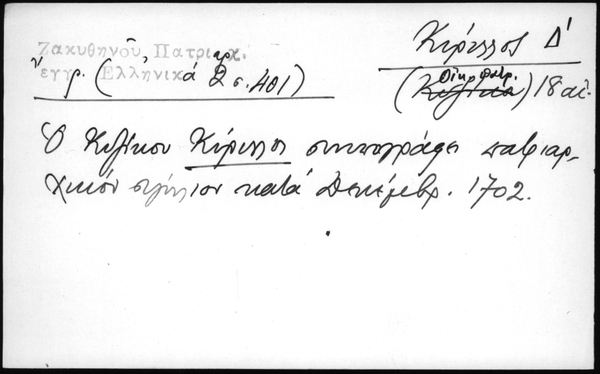 Ζακυθηνοῦ, Πατριαρχ.
ἔγγρ. (Ἑλληνικά 2 σ. 401)
Κύριλλος Δ'
(Κυζίκου) Οἰκ. Πατρ. 18 αἰ.
Ὁ Κυζίκου Κύριλλος συνυπογράφει πατριαρ-
χικόν σιγίλλιον κατά Δεκέμβρ. 1702.